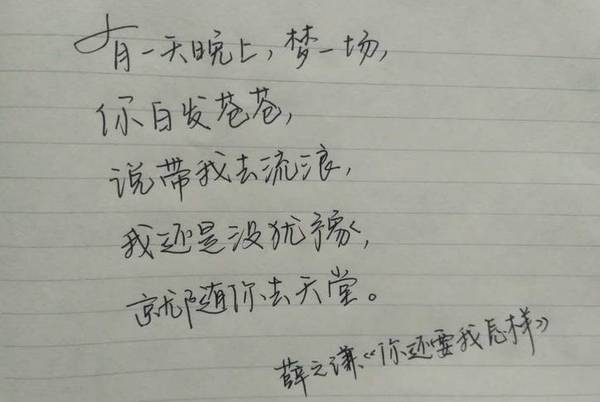 有一天晚上，梦一场，
你白发苍苍，
说带我去流浪，
我还是没犹豫，
就随你去天堂。
薛之谦《你还要我怎样》